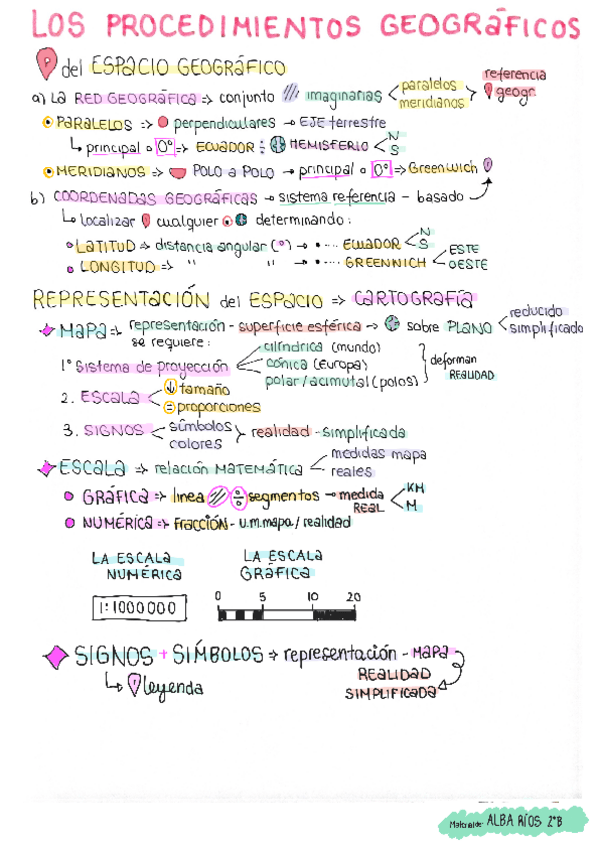 LOS PROCEDIMIENTOS GEOGRÁFICOS
del ESPACIO GEOGRÁFICO
a) La RED GEOGRÁFICA => conjunto /// imaginarias < paralelos meridianos > referencia geogr.
PARALELOS => perpendiculares → EJE terrestre
principal o 0° => ECUADOR : HEMISFERIO < N S
MERIDIANOS => POLO a POLO → principal o 0° => Greenwich
b) COORDENADAS GEOGRÁFICAS → sistema referencia - basado
localizar cualquier determinando :
LATITUD => distancia angular (°) → •···· ECUADOR < N S
LONGITUD => " " → •···· GREENNICH < ESTE OESTE
REPRESENTACIÓN del ESPACIO => CARTOGRAFÍA
MAPA => representación - superficie esférica → sobre PLANO < reducido simplificado
se requiere :
1° Sistema de proyección < cilíndrica (mundo) cónica (Europa) polar/acimutal (polos) } deforman REALIDAD
2. ESCALA < ↓ tamaño = proporciones
3. SIGNOS < símbolos colores > realidad - simplificada
ESCALA => relación MATEMÁTICA < medidas mapa reales
GRÁFICA => linea /// ÷ segmentos → medida REAL < KM M
NUMÉRICA => FRACCIÓN - u.m.mapa / realidad
LA ESCALA NUMÉRICA
LA ESCALA GRÁFICA
1:1000000
0 5 10 20
SIGNOS + SÍMBOLOS → representación - MAPA
REALIDAD
SIMPLIFICADA
leyenda
Material de: ALBA RÍOS 2ºB